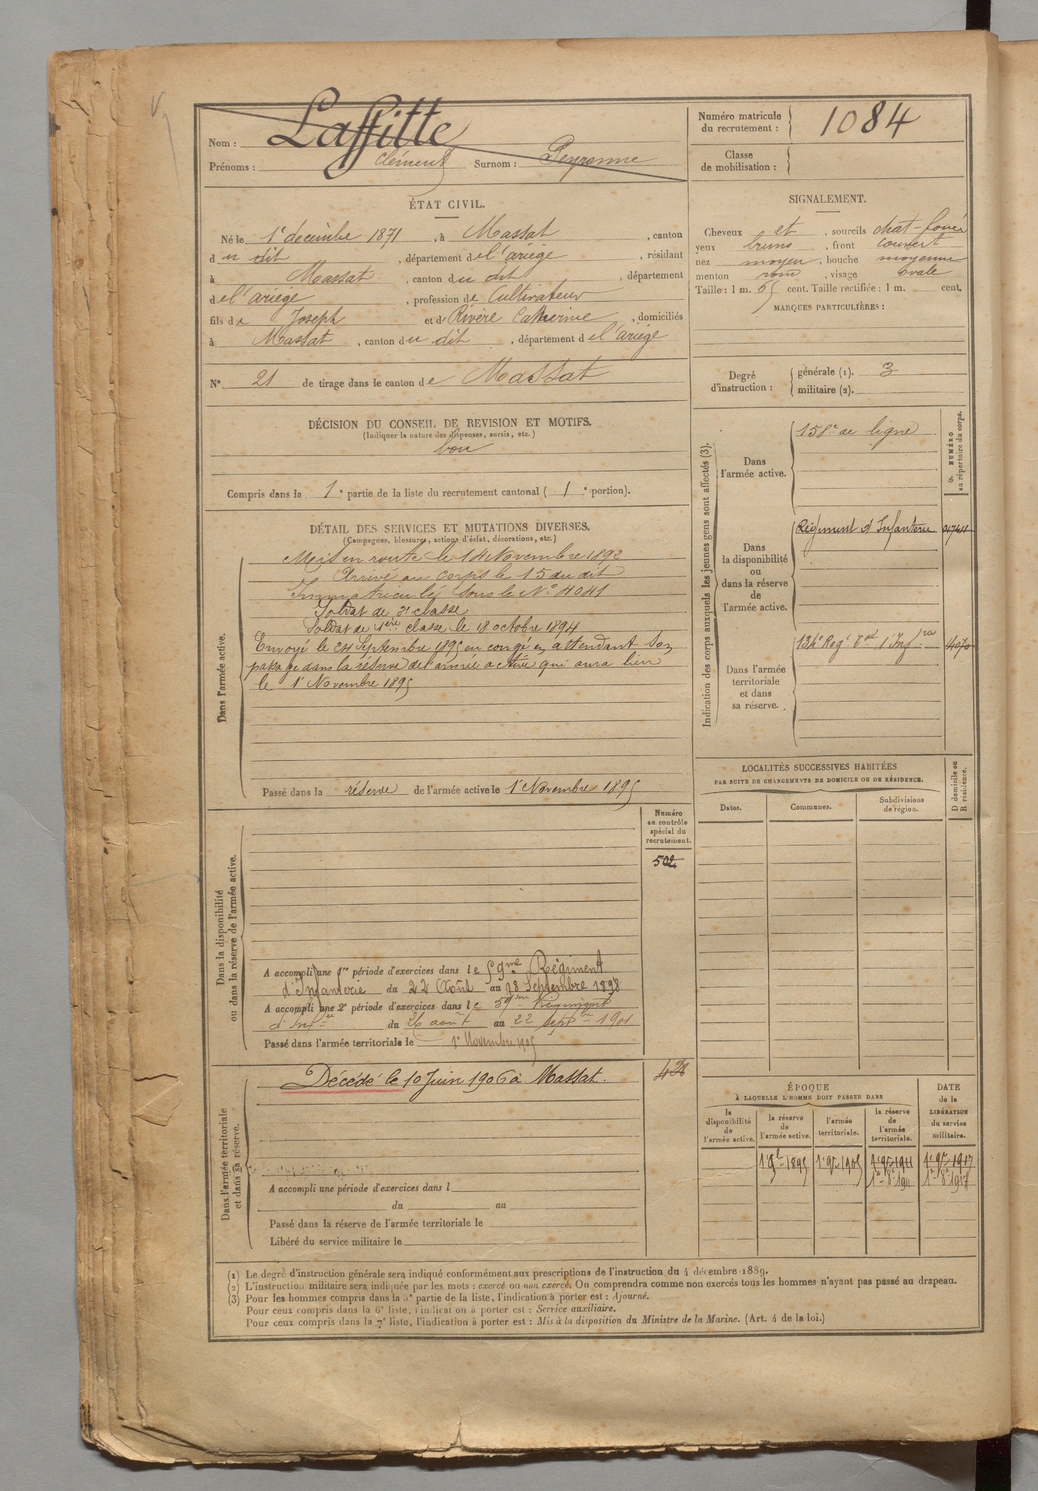 Nom : Laffitte
Prénoms : Clément Surnom : Peyronne
Numéro matricule du recrutement : 1084
Classe de mobilisation :
ÉTAT CIVIL.
Né le 1er décembre 1871, à Massat, canton
du dit, département de l'ariège, résidant
à Massat, canton du dit, département
de l'ariège, profession de Cultivateur
fils de Joseph et de Rivère Catherine, domiciliés
à Massat, canton du dit, département de l'ariège
N° 21 de tirage dans le canton de Massat
SIGNALEMENT.
Cheveux et, sourcils chat-foncé
yeux bruns, front couvert
nez moyen, bouche moyenne
menton rond, visage ovale
Taille : 1 m. 65 cent. Taille rectifiée : 1 m. cent.
MARQUES PARTICULIÈRES :
Degré d'instruction : générale (1). 3
militaire (2).
DÉCISION DU CONSEIL DE REVISION ET MOTIFS.
(Indiquer la nature des dispenses, sursis, etc.)
bon
Compris dans la 1e partie de la liste du recrutement cantonal ( 1e portion).
DÉTAIL DES SERVICES ET MUTATIONS DIVERSES.
(Campagnes, blessures, actions d'éclat, décorations, etc.)
Dans l'armée active.
Mis en route le 14 Novembre 1892
Arrivé au corps le 15 du dit
Immatriculé sous le N° 4041
Soldat de 2e classe
Soldat de 1ère classe le 18 octobre 1894
Envoyé le 24 Septembre 1895 en congé en attendant son
passage dans la réserve de l'armée active qui aura lieu
le 1er Novembre 1895
Passé dans la réserve de l'armée active le 1er Novembre 1895
Indication des corps auxquels les jeunes gens sont affectés (3).
NUMÉRO au répertoire du corps.
Dans l'armée active.
158e de ligne
Dans la disponibilité ou dans la réserve de l'armée active.
Régiment d'Infanterie
Dans l'armée territoriale et dans sa réserve.
134e Regt Tal d'Infrie
LOCALITÉS SUCCESSIVES HABITÉES
PAR SUITE DE CHANGEMENTS DE DOMICILE OU DE RÉSIDENCE.
Dates.
Communes.
Subdivisions de région.
D domicile ou R résidence.
Dans la disponibilité ou dans la réserve de l'armée active.
Numéro au contrôle spécial du recrutement.
502
A accompli une 1re période d'exercices dans le 59me Régiment
d'Infanterie du 22 Août au 18 Septembre 1898
A accompli une 2e période d'exercices dans le 59me Régiment
d'Infrie du 26 août au 22 septbre 1901
Passé dans l'armée territoriale le 1er Novembre 1905
Dans l'armée territoriale et dans sa réserve.
Décédé le 10 Juin 1906 à Massat.
A accompli une période d'exercices dans l
du au
Passé dans la réserve de l'armée territoriale le
Libéré du service militaire le
ÉPOQUE
À LAQUELLE L'HOMME DOIT PASSER DANS
la disponibilité de l'armée active.
la réserve de l'armée active.
l'armée territoriale.
la réserve de l'armée territoriale.
DATE de la LIBÉRATION du service militaire.
(1) Le degré d'instruction générale sera indiqué conformément aux prescriptions de l'instruction du 4 décembre 1889.
(2) L'instruction militaire sera indiquée par les mots : exercé ou non exercé. On comprendra comme non exercés tous les hommes n'ayant pas passé au drapeau.
(3) Pour les hommes compris dans la 5e partie de la liste, l'indication à porter est : Ajourné.
Pour ceux compris dans la 6e liste, l'indication à porter est : Service auxiliaire.
Pour ceux compris dans la 7e liste, l'indication à porter est : Mis à la disposition du Ministre de la Marine. (Art. 4 de la loi.)